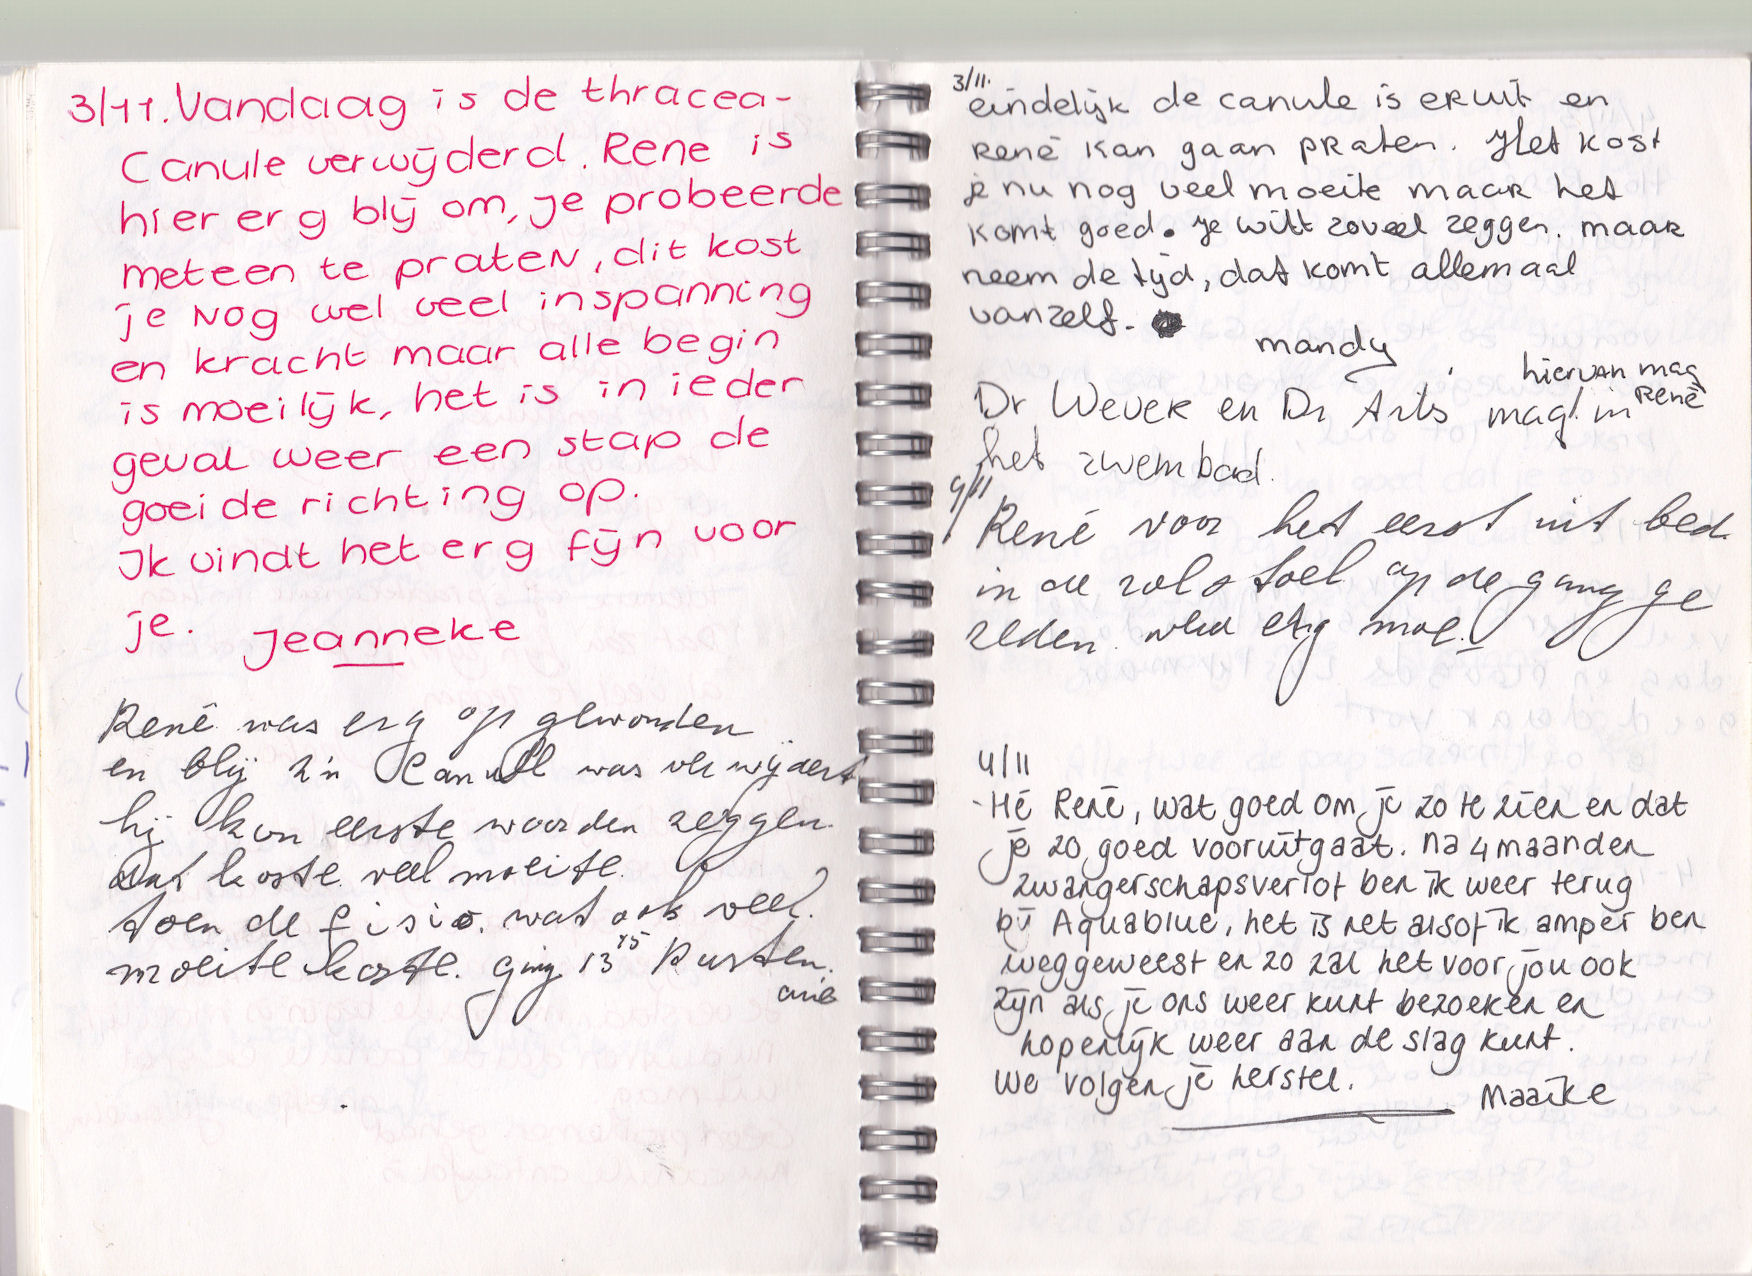 3/11. Vandaag is de thracea-
Canule verwijderd. Rene is
hier erg blij om, je probeerde
meteen te praten, dit kost
je nog wel veel inspanning
en kracht maar alle begin
is moeilijk, het is in ieder
geval weer een stap de
goeide richting op.
Ik vindt het erg fijn voor
je. Jeanneke
René was erg op gewonden
en blij z'n Canull was verwijdert
hij kon eerste woorden zeggen.
Dat koste veel moeite.
toen de fisio. wat ook veel.
moeite koste. ging 13 15 Rusten.
arie
3/11.
eindelijk de canule is eruit en
René kan gaan praten. Het kost
je nu nog veel moeite maar het
komt goed. Je wilt zoveel zeggen. maar
neem de tijd, dat komt allemaal
vanzelf.
mandy
hiervan mag
René
Dr Wever en Dr Arts mag! in
het zwembad.
4/11
René voor het eerst uit bed.
in de rolstoel op de gang ge
reden. werd erg moe!
4/11
-Hé René, wat goed om je zo te zien en dat
je zo goed vooruitgaat. na 4 maanden
zwangerschapsverlof ben ik weer terug
bij Aquablue, het is net alsof ik amper ben
weggeweest en zo zal het voor jou ook
zijn als je ons weer kunt bezoeken en
hopenlijk weer aan de slag kunt.
We volgen je herstel.
Maaike